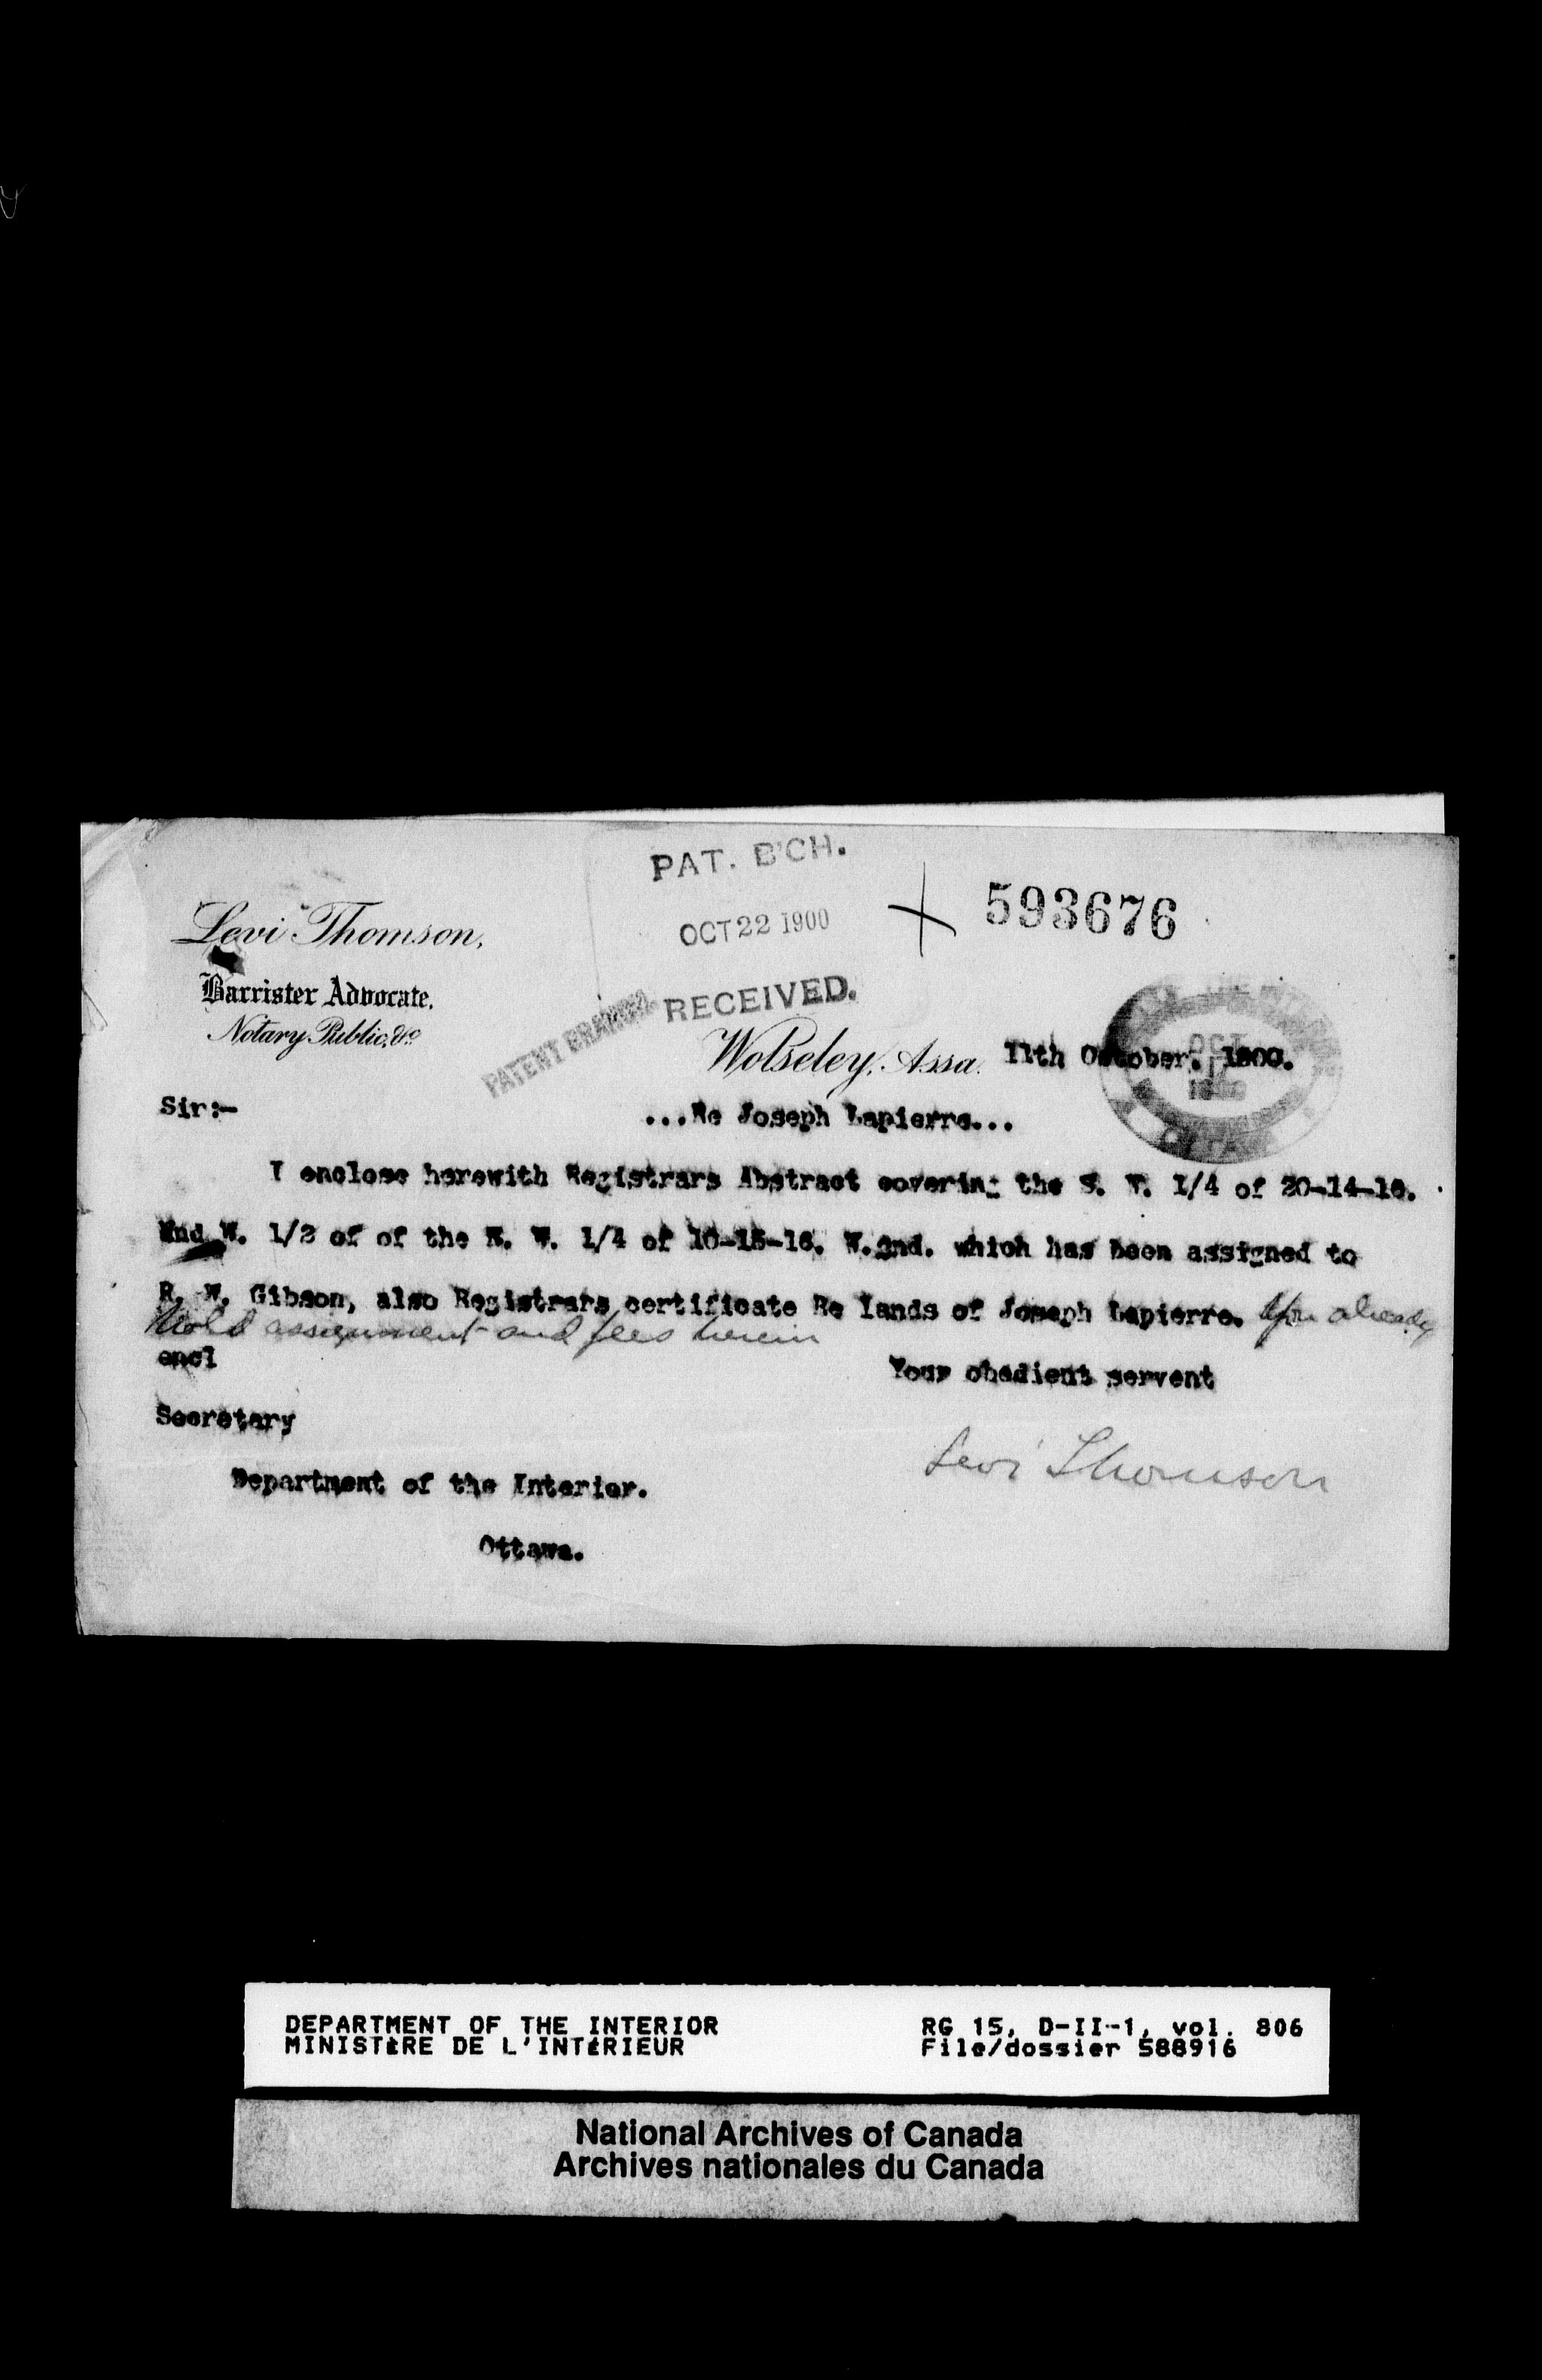 PAT. B'CH.
593676
OCT 22 1900
Levi Thomson,
Barrister Advocate,
Notary Public, &c
RECEIVED.
PATENT BRANCH
Wolseley, Assa. 11th October. 1900.
OCT
OTTAWA
Sir:-
...Re Joseph Lapierre...
I enclose herewith Registrars Abstract covering the S. W. 1/4 of 20-14-16.
And W. 1/2 of of the N. W. 1/4 of 10-15-16. W.2nd. which has been assigned to
R. W. Gibson, also Registrars certificate Re lands of Joseph Lapierre. You already
hold assignment and fees herein
encl
Your obedient servent
Secretary
Levi Thomson
Department of the Interior.
Ottawa.
DEPARTMENT OF THE INTERIOR RG 15, D-II-1, vol. 806
MINISTÈRE DE L'INTÉRIEUR File/dossier 588916
National Archives of Canada
Archives nationales du Canada